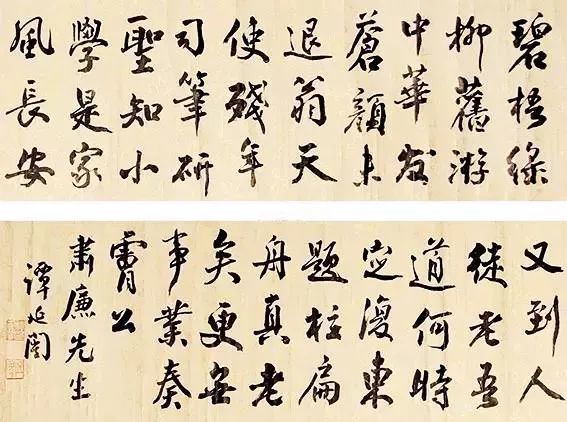 碧梧綠
柳舊游
中華髮
蒼顏未
退翁天
使殘年
司筆研
聖知小
學是家
風長安
又到人
徒老吾
道何時
定復東
題柱扁
舟真老
矣更無
事業奏
膚公
肅廉先生
譚延闓